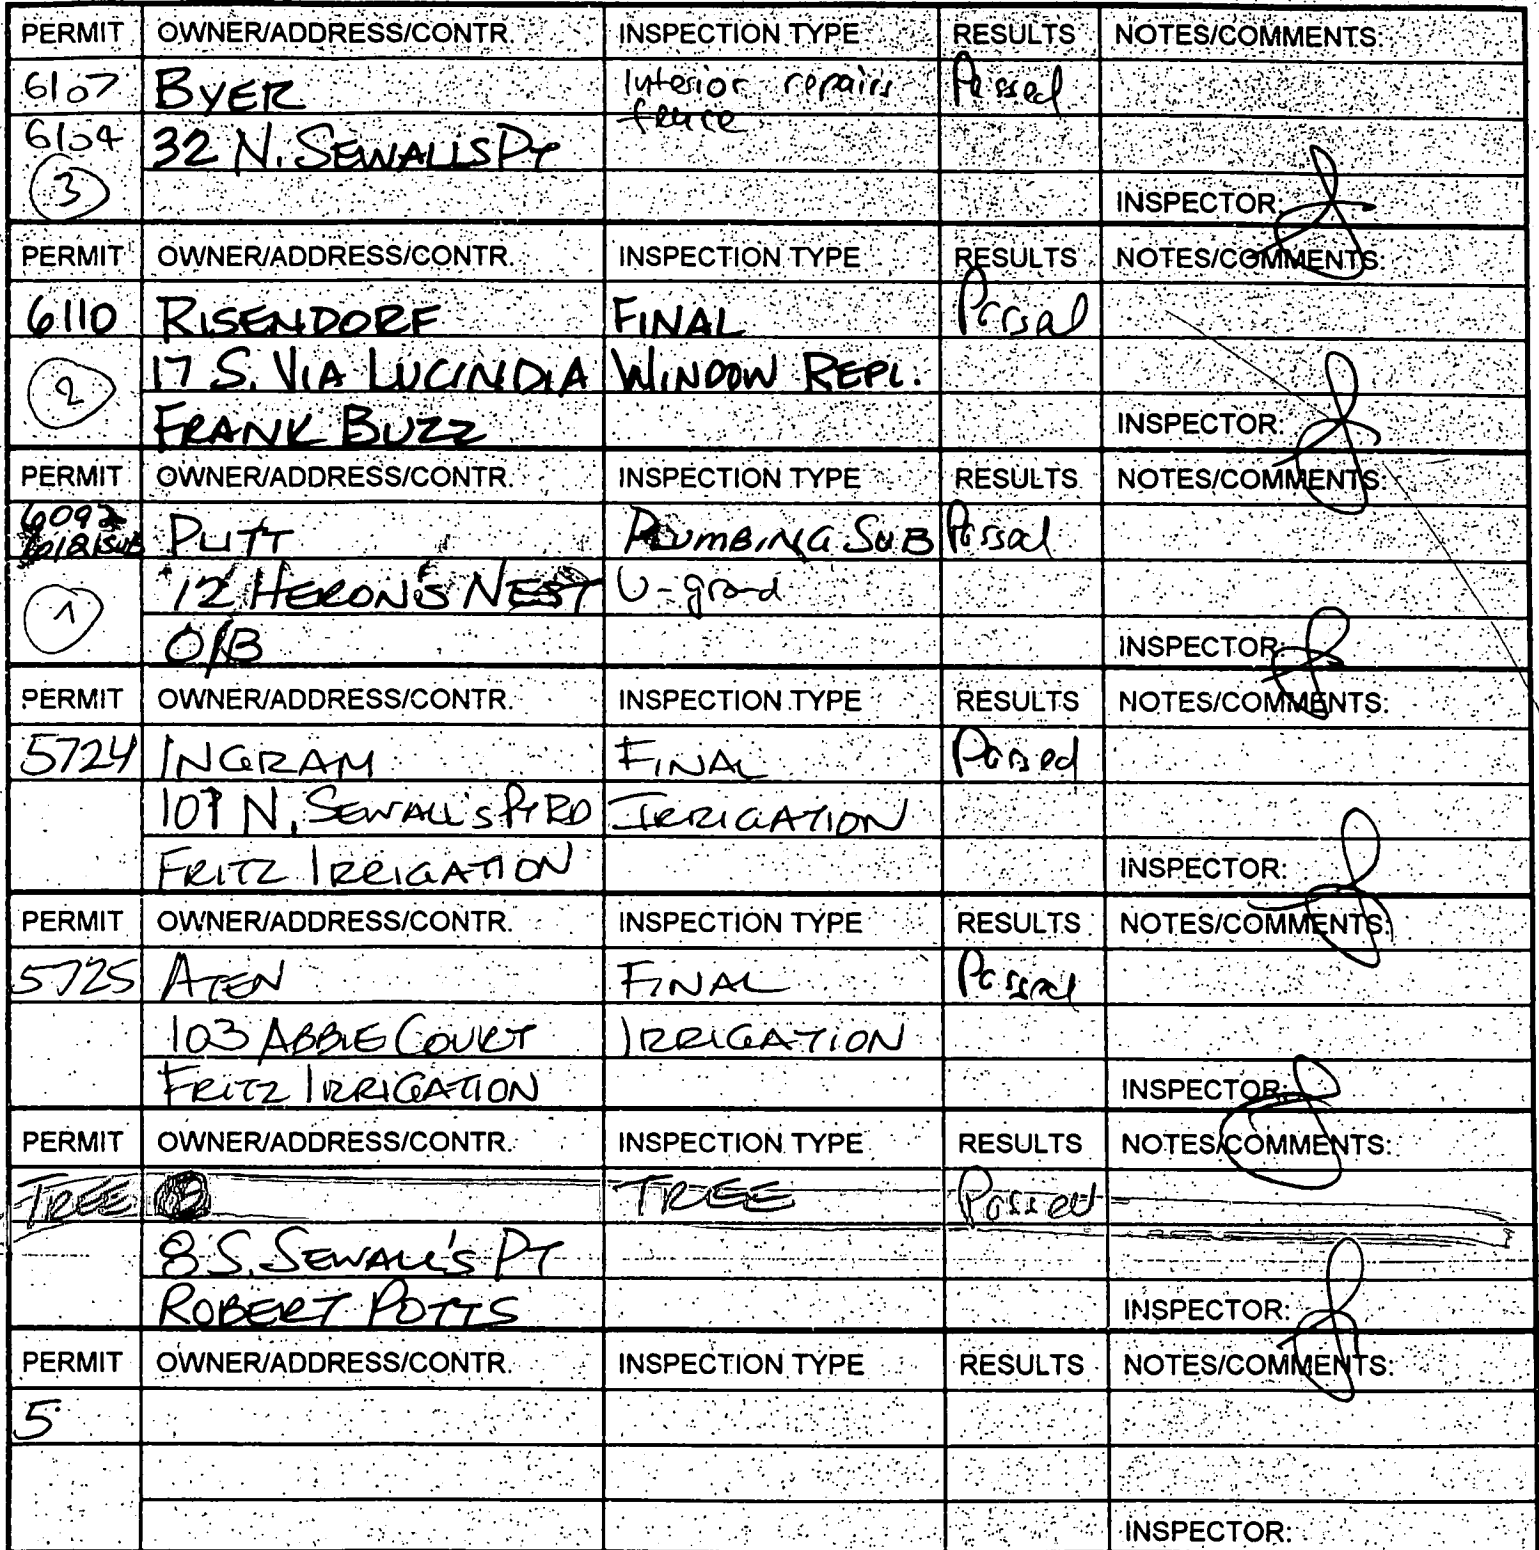 PERMIT OWNER/ADDRESS/CONTR. INSPECTION TYPE RESULTS NOTES/COMMENTS:
6107 BYER Interior repairs Passed
fence
6104 32 N. SEWALLS PT
3 INSPECTOR:
PERMIT OWNER/ADDRESS/CONTR. INSPECTION TYPE RESULTS NOTES/COMMENTS:
6110 RISENDORF FINAL Passed
2 17 S. VIA LUCINDIA WINDOW REPL.
FRANK BUZZ INSPECTOR:
PERMIT OWNER/ADDRESS/CONTR. INSPECTION TYPE RESULTS NOTES/COMMENTS:
6092 PUTT PLUMBING SUB Passed
1 12 HERON'S NEST U-grond
O/B INSPECTOR:
PERMIT OWNER/ADDRESS/CONTR. INSPECTION TYPE RESULTS NOTES/COMMENTS:
5724 INGRAM FINAL Passed
107 N. SEWALL'S PT RD IRRIGATION
FRITZ IRRIGATION INSPECTOR:
PERMIT OWNER/ADDRESS/CONTR. INSPECTION TYPE RESULTS NOTES/COMMENTS:
5725 ATEN FINAL Passed
103 ABBIE COURT IRRIGATION
FRITZ IRRIGATION INSPECTOR:
PERMIT OWNER/ADDRESS/CONTR. INSPECTION TYPE RESULTS NOTES/COMMENTS:
TREE TREE Passed
8 S. SEWALL'S PT
ROBERT POTTS INSPECTOR:
PERMIT OWNER/ADDRESS/CONTR. INSPECTION TYPE RESULTS NOTES/COMMENTS:
5
INSPECTOR: